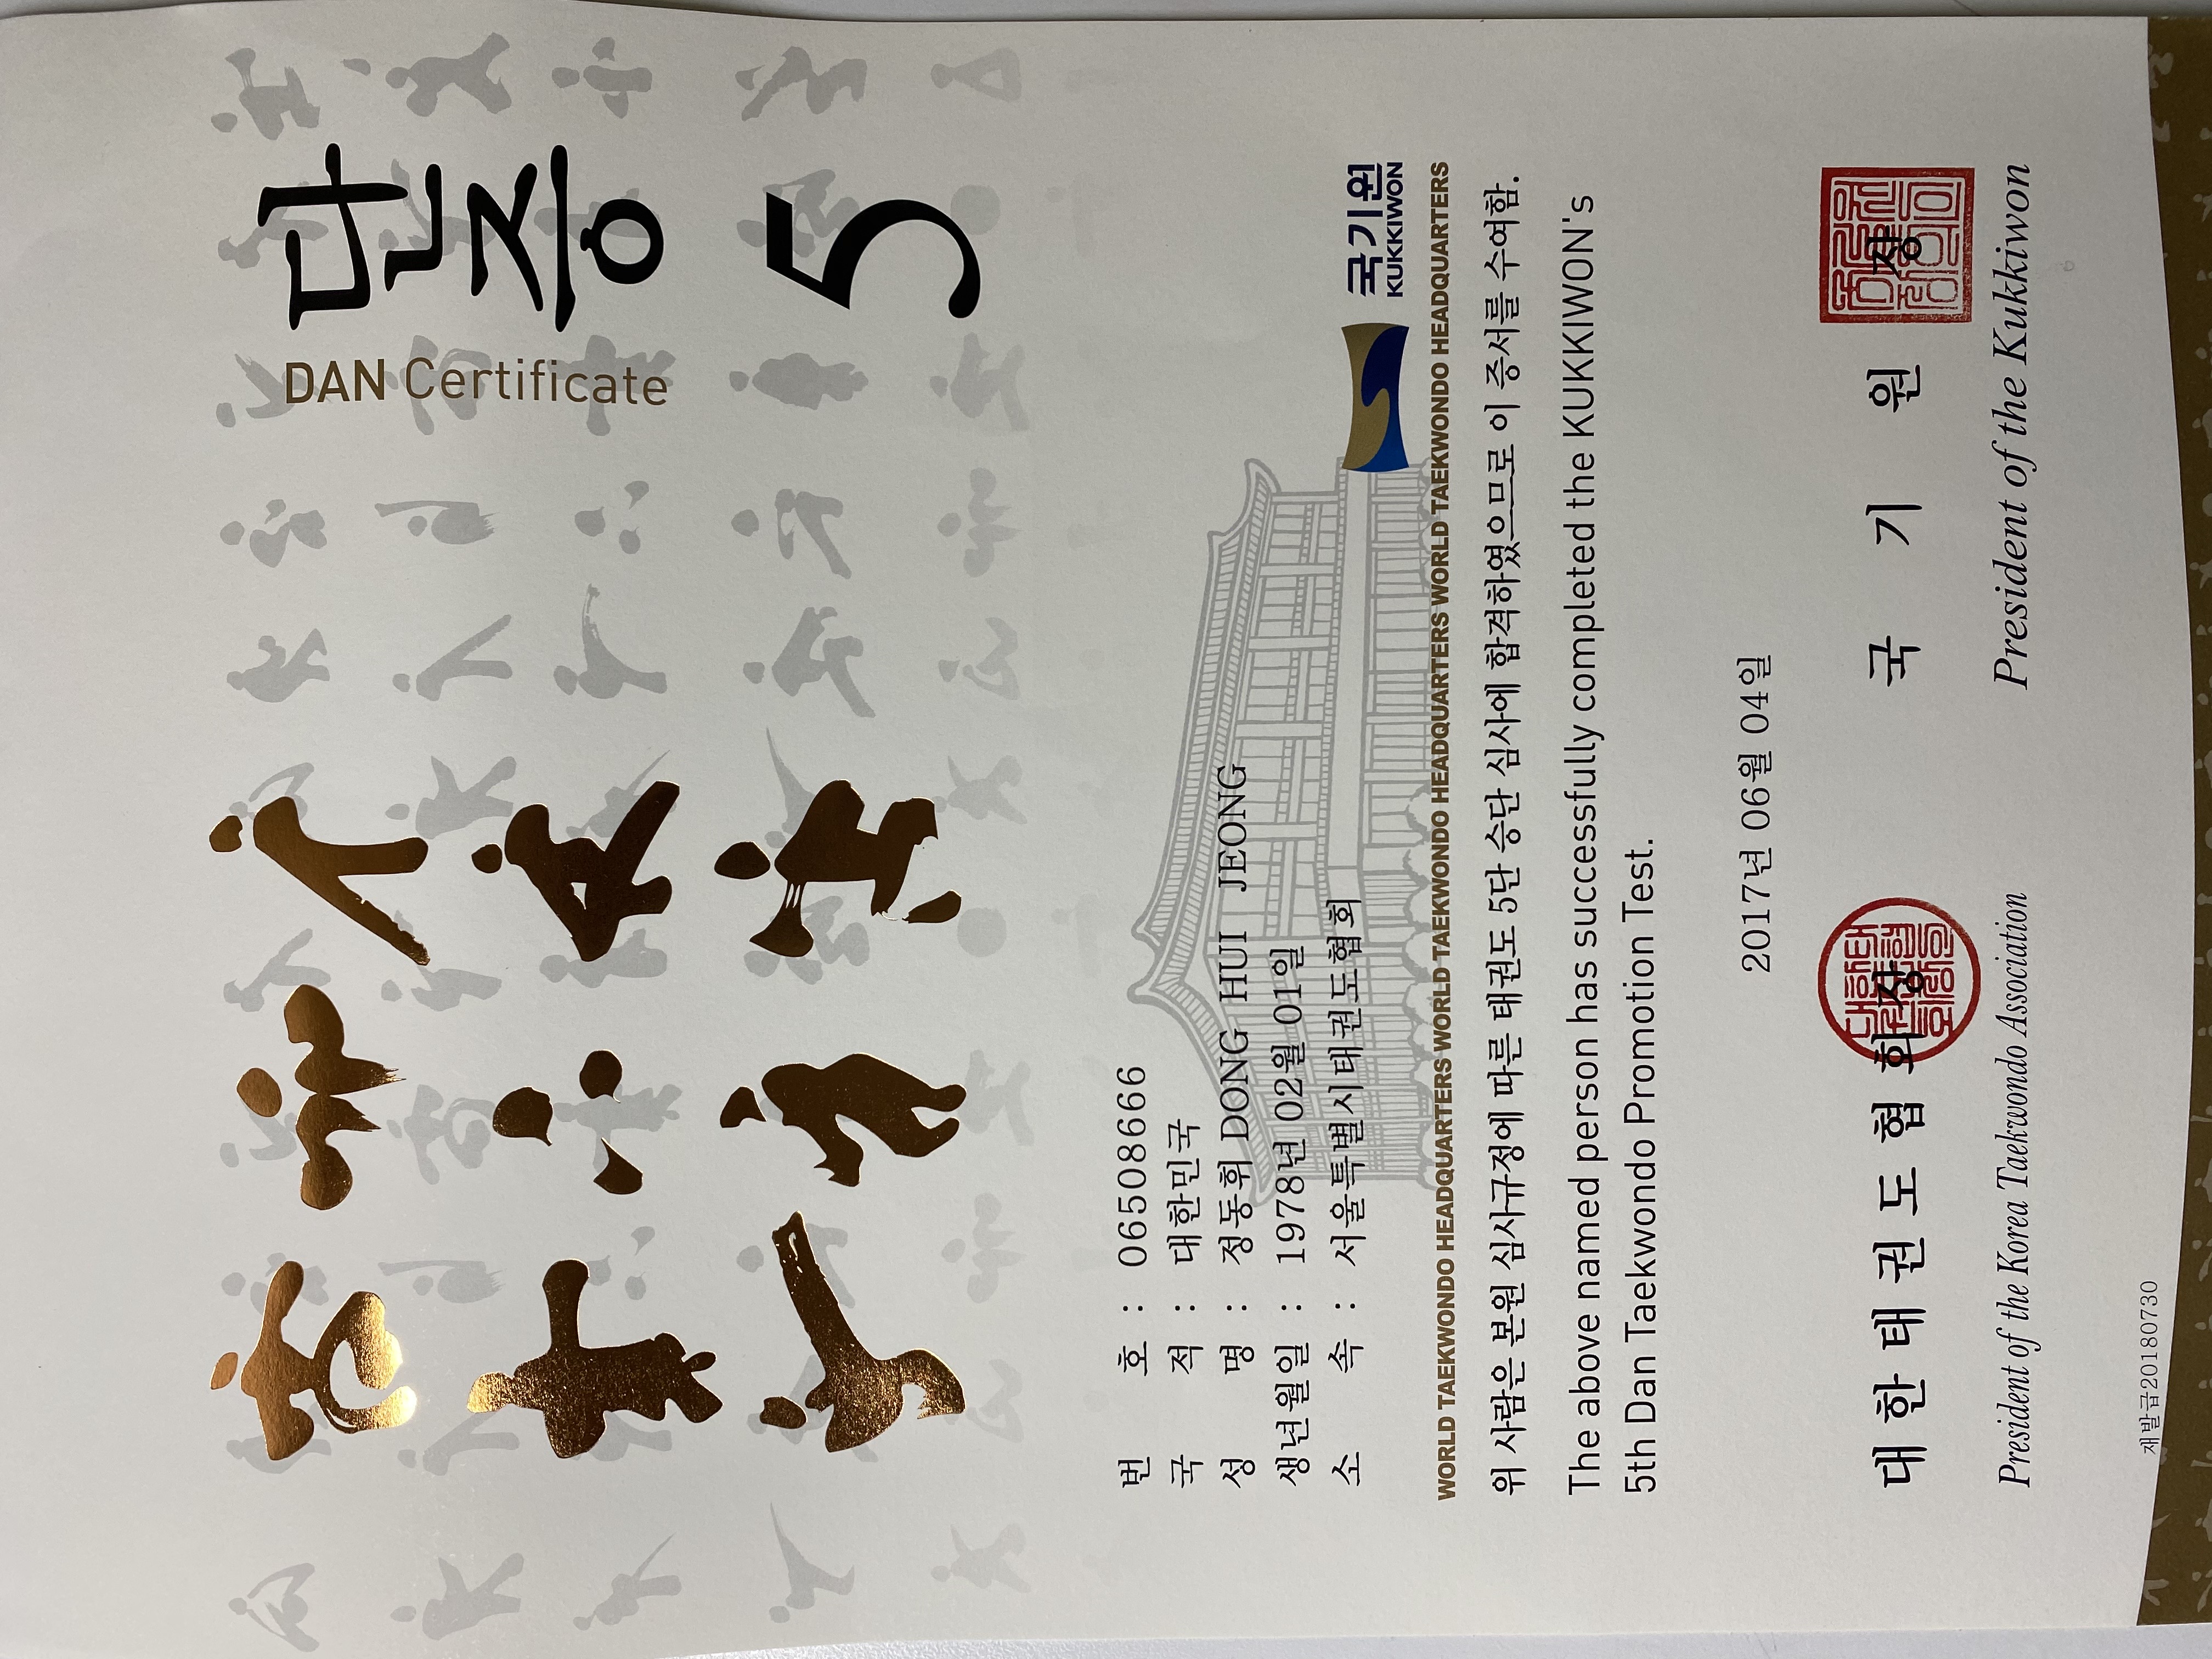 단증
DAN Certificate
5
번 호 : 06508666
국 적 : 대한민국
성 명 : 정동휘 DONG HUI JEONG
생년월일 : 1978년 02월 01일
소 속 : 서울특별시태권도협회
국기원
KUKKIWON
WORLD TAEKWONDO HEADQUARTERS WORLD TAEKWONDO HEADQUARTERS WORLD TAEKWONDO HEADQUARTERS WORLD TAEKWONDO HEADQUARTERS
위 사람은 본원 심사규정에 따른 태권도 5단 승단 심사에 합격하였으므로 이 증서를 수여함.
The above named person has successfully completed the KUKKIWON's
5th Dan Taekwondo Promotion Test.
2017년 06월 04일
대한태권도협회장 국기원장
President of the Korea Taekwondo Association President of the Kukkiwon
재발급20180730